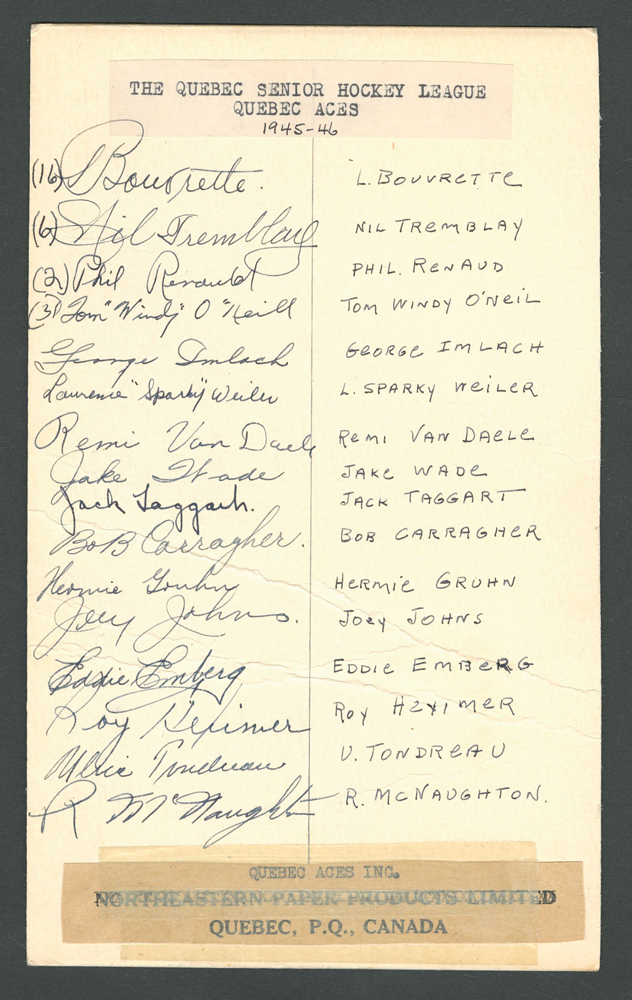 THE QUEBEC SENIOR HOCKEY LEAGUE
QUEBEC ACES
1945-46
(16) L Bouvrette. L. BOUVRETTE
(6) Nil Tremblay NIL TREMBLAY
(2) Phil Renauld PHIL. RENAUD
(3) Tom "Windy" O'Neill TOM WINDY O'NEIL
George Imlach GEORGE IMLACH
Lawrence "Sparky" Weiler L. SPARKY WEILER
Remi Van Daele REMI VAN DAELE
Jake Wade JAKE WADE
Jack Taggart. JACK TAGGART
BoB Carragher. BOB CARRAGHER
Hermie Gruhn HERMIE GRUHN
Joey Johns. JOEY JOHNS
Eddie Emberg EDDIE EMBERG
Roy Heximer ROY HEXIMER
Ulric Tondreau U. TONDREAU
R McNaughton R. MCNAUGHTON.
QUEBEC ACES INC.
NORTHEASTERN PAPER PRODUCTS LIMITED
QUEBEC, P.Q., CANADA